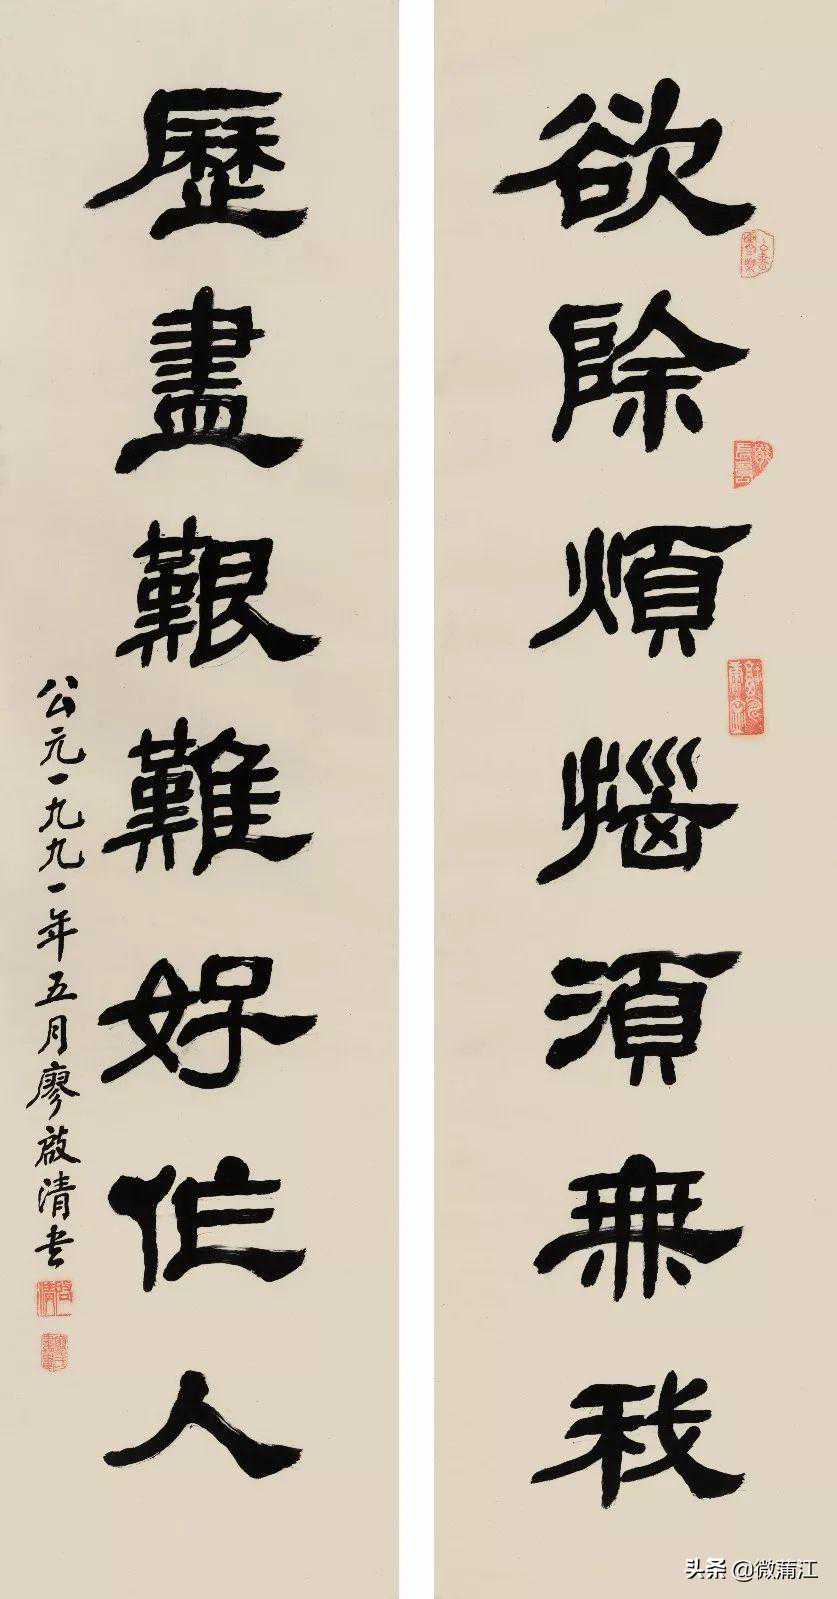 欲除煩惱須無我
歷盡艱難好作人
公元一九九一年五月廖啟清书
头条 @微蒲江